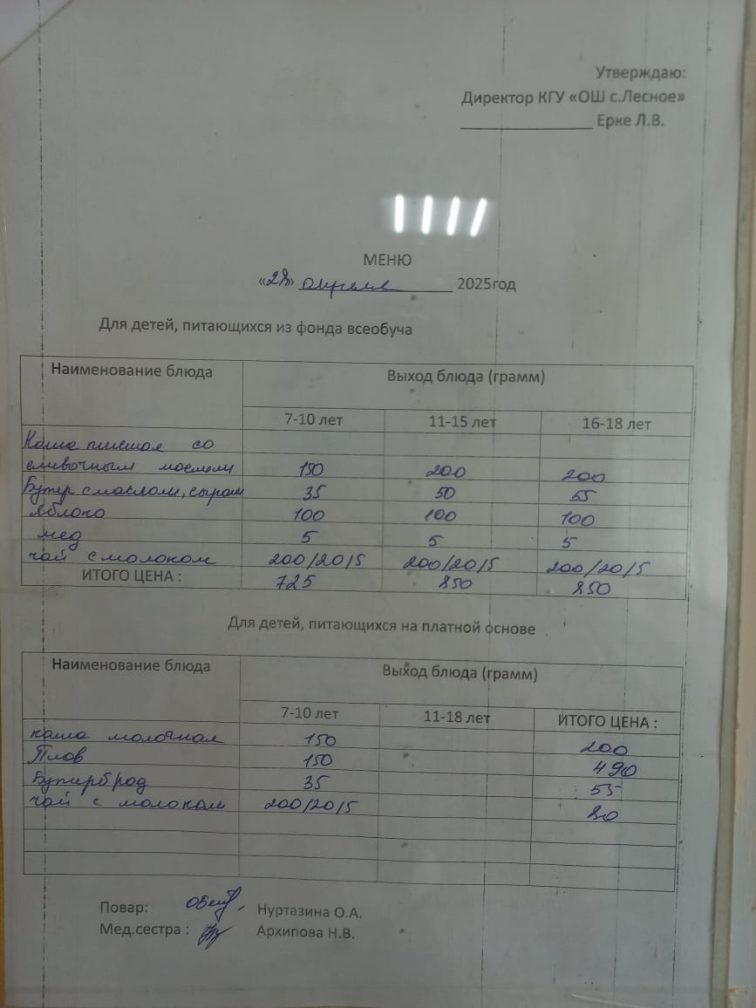 Утверждаю:
Директор КГУ «ОШ с.Лесное»
______________ Ерке Л.В.
МЕНЮ
«28» апреля 2025год
Для детей, питающихся из фонда всеобуча
Наименование блюда Выход блюда (грамм)
7-10 лет 11-15 лет 16-18 лет
Каша со
сливочным маслом 150 200 200
Бутер с маслом, сыром 35 50 55
Яблоко 100 100 100
мед 5 5 5
чай с молоком 200/20/5 200/20/5 200/20/5
ИТОГО ЦЕНА : 725 850 850
Для детей, питающихся на платной основе
Наименование блюда Выход блюда (грамм)
7-10 лет 11-18 лет ИТОГО ЦЕНА :
каша молочная 150 200
Плов 150 490
Бутерброд 35 55
чай с молоком 200/20/5 80
Повар: Нуртазина О.А.
Мед.сестра : Архипова Н.В.